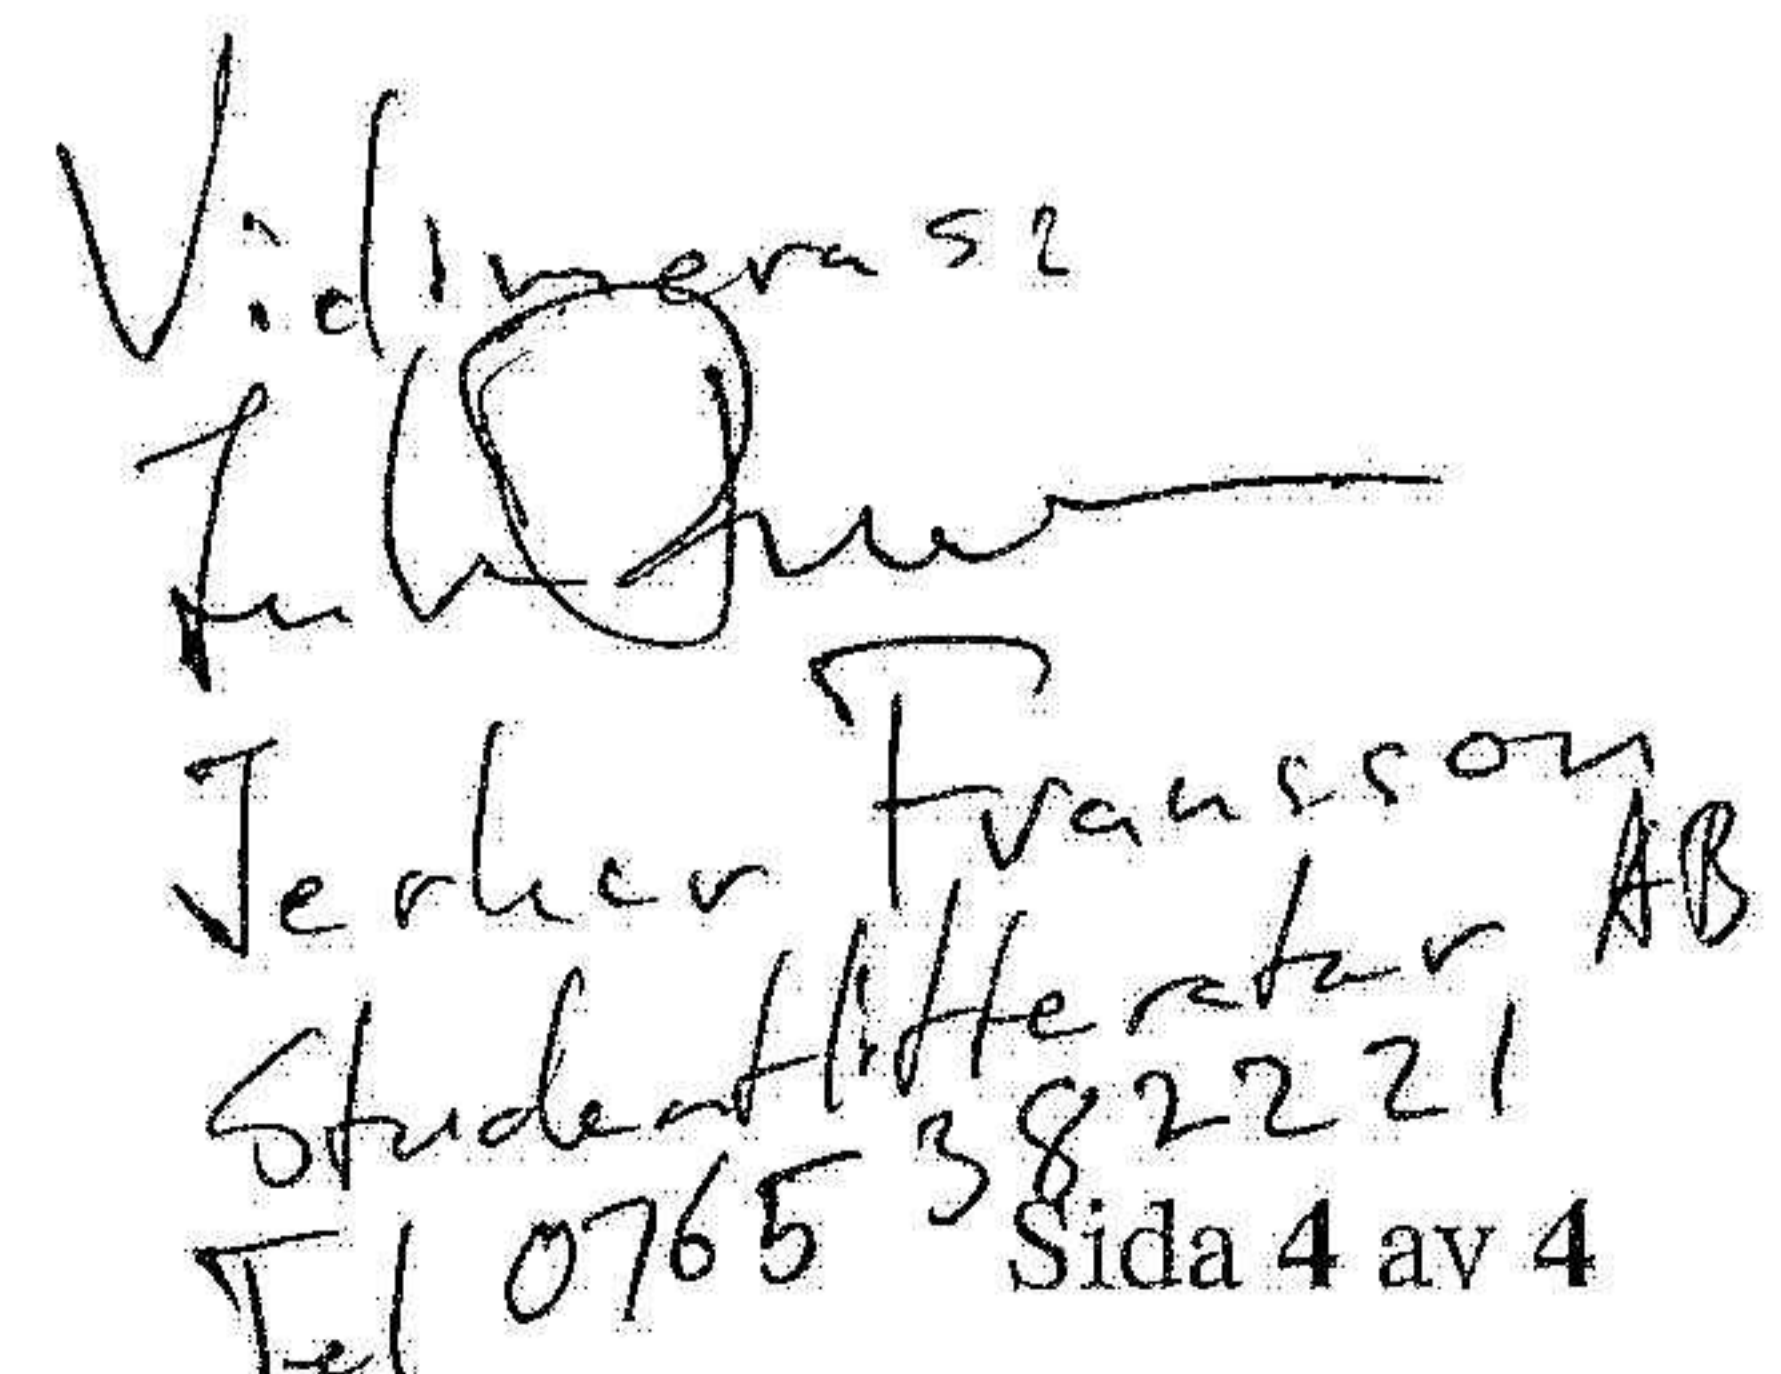 Vidimeras:
Jerker Fransson
Studentlitteratur AB
Tel 0765 382221
Sida 4 av 4